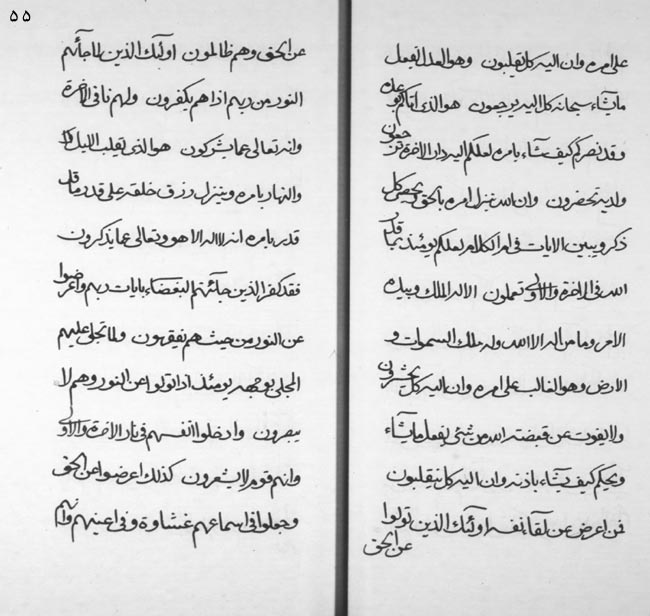 على امره وان اليه كل تقلبون وهو العدل الفعل
ما يشاء سبحانه كل اليه يرجعون هو الذي اتاكم بوعده
وقد نصركم كيف شاء بامره لعلكم اليه دار الاخرة ترجعون
ولديه تحضرون وان الله ينزل امره بالحق ويحصى كل
ذكر ويبين الايات في امر الكلام لعلكم يومئذ بما قال
الله في الاخرة والاولى تعملون الا له الملك وبيده
الامر وما من اله الا الله وله ملك السموات و
الارض وهو الغالب على امره وان اليه كل يحشرون
ولا يفوت عن قبضته الله من شيء يفعل ما يشاء
ويحكم كيف يشاء باذنه وان اليه كل ينقلبون
فمن اعرض عن لقاء نفسه اولئك الذين تولوا
عن الحق
٥٥
عن الحق وهم ظالمون اولئك الذين لما جائهم
النور من ربهم اذا هم يكفرون ولهم نار في الاخرة
وانه تعالى عما يشركون هو الذي يقلب الليل
والنهار بامره وينزل رزق خلقه على قدر ما قال
قدر بامره انه لا اله الا هو وتعالى عما يذكرون
فقد كفر الذين جائتهم البغضاء بايات ربهم واعرضوا
عن النور من حيث هم يفقهون ولما تجلى عليهم
المجلى بوجهه يومئذ اذا تولوا عن النور وهم لا
يبصرون وادخلوا انفسهم في نار الاخرة والاولى
وانهم قوم لا يشعرون كذلك اعرضوا عن الحق
وجعلوا في اسماعهم غشاوة وفي اعينهم